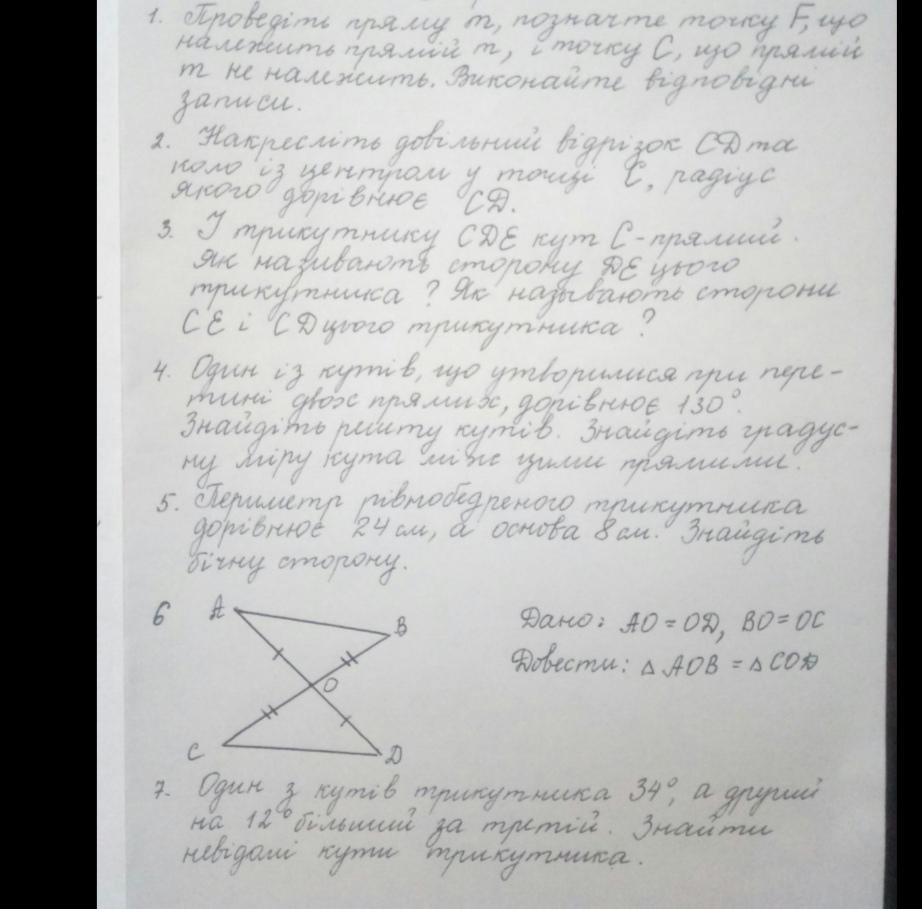 1. Проведіть пряму m, позначте точку F, що
належить прямій m, і точку C, що прямій
m не належить. Виконайте відповідні
записи.
2. Накресліть довільний відрізок CD та
коло із центром у точці C, радіус
якого дорівнює CD.
3. У трикутнику CDE кут C - прямий.
Як називають сторону DE цього
трикутника? Як называють сторони
CE і CD цього трикутника?
4. Один із кутів, що утворилися при пере-
тині двох прямих, дорівнює 130°.
Знайдіть решту кутів. Знайдіть градус-
ну міру кута між цими прямими.
5. Периметр рівнобедреного трикутника
дорівнює 24 см, а основа 8 см. Знайдіть
бічну сторону.
6 A
B
O
C
D
Дано: AO = OD, BO = OC
Довести: △ AOB = △ COD
7. Один з кутів трикутника 34°, а другий
на 12° більший за третій. Знайти
невідомі кути трикутника.